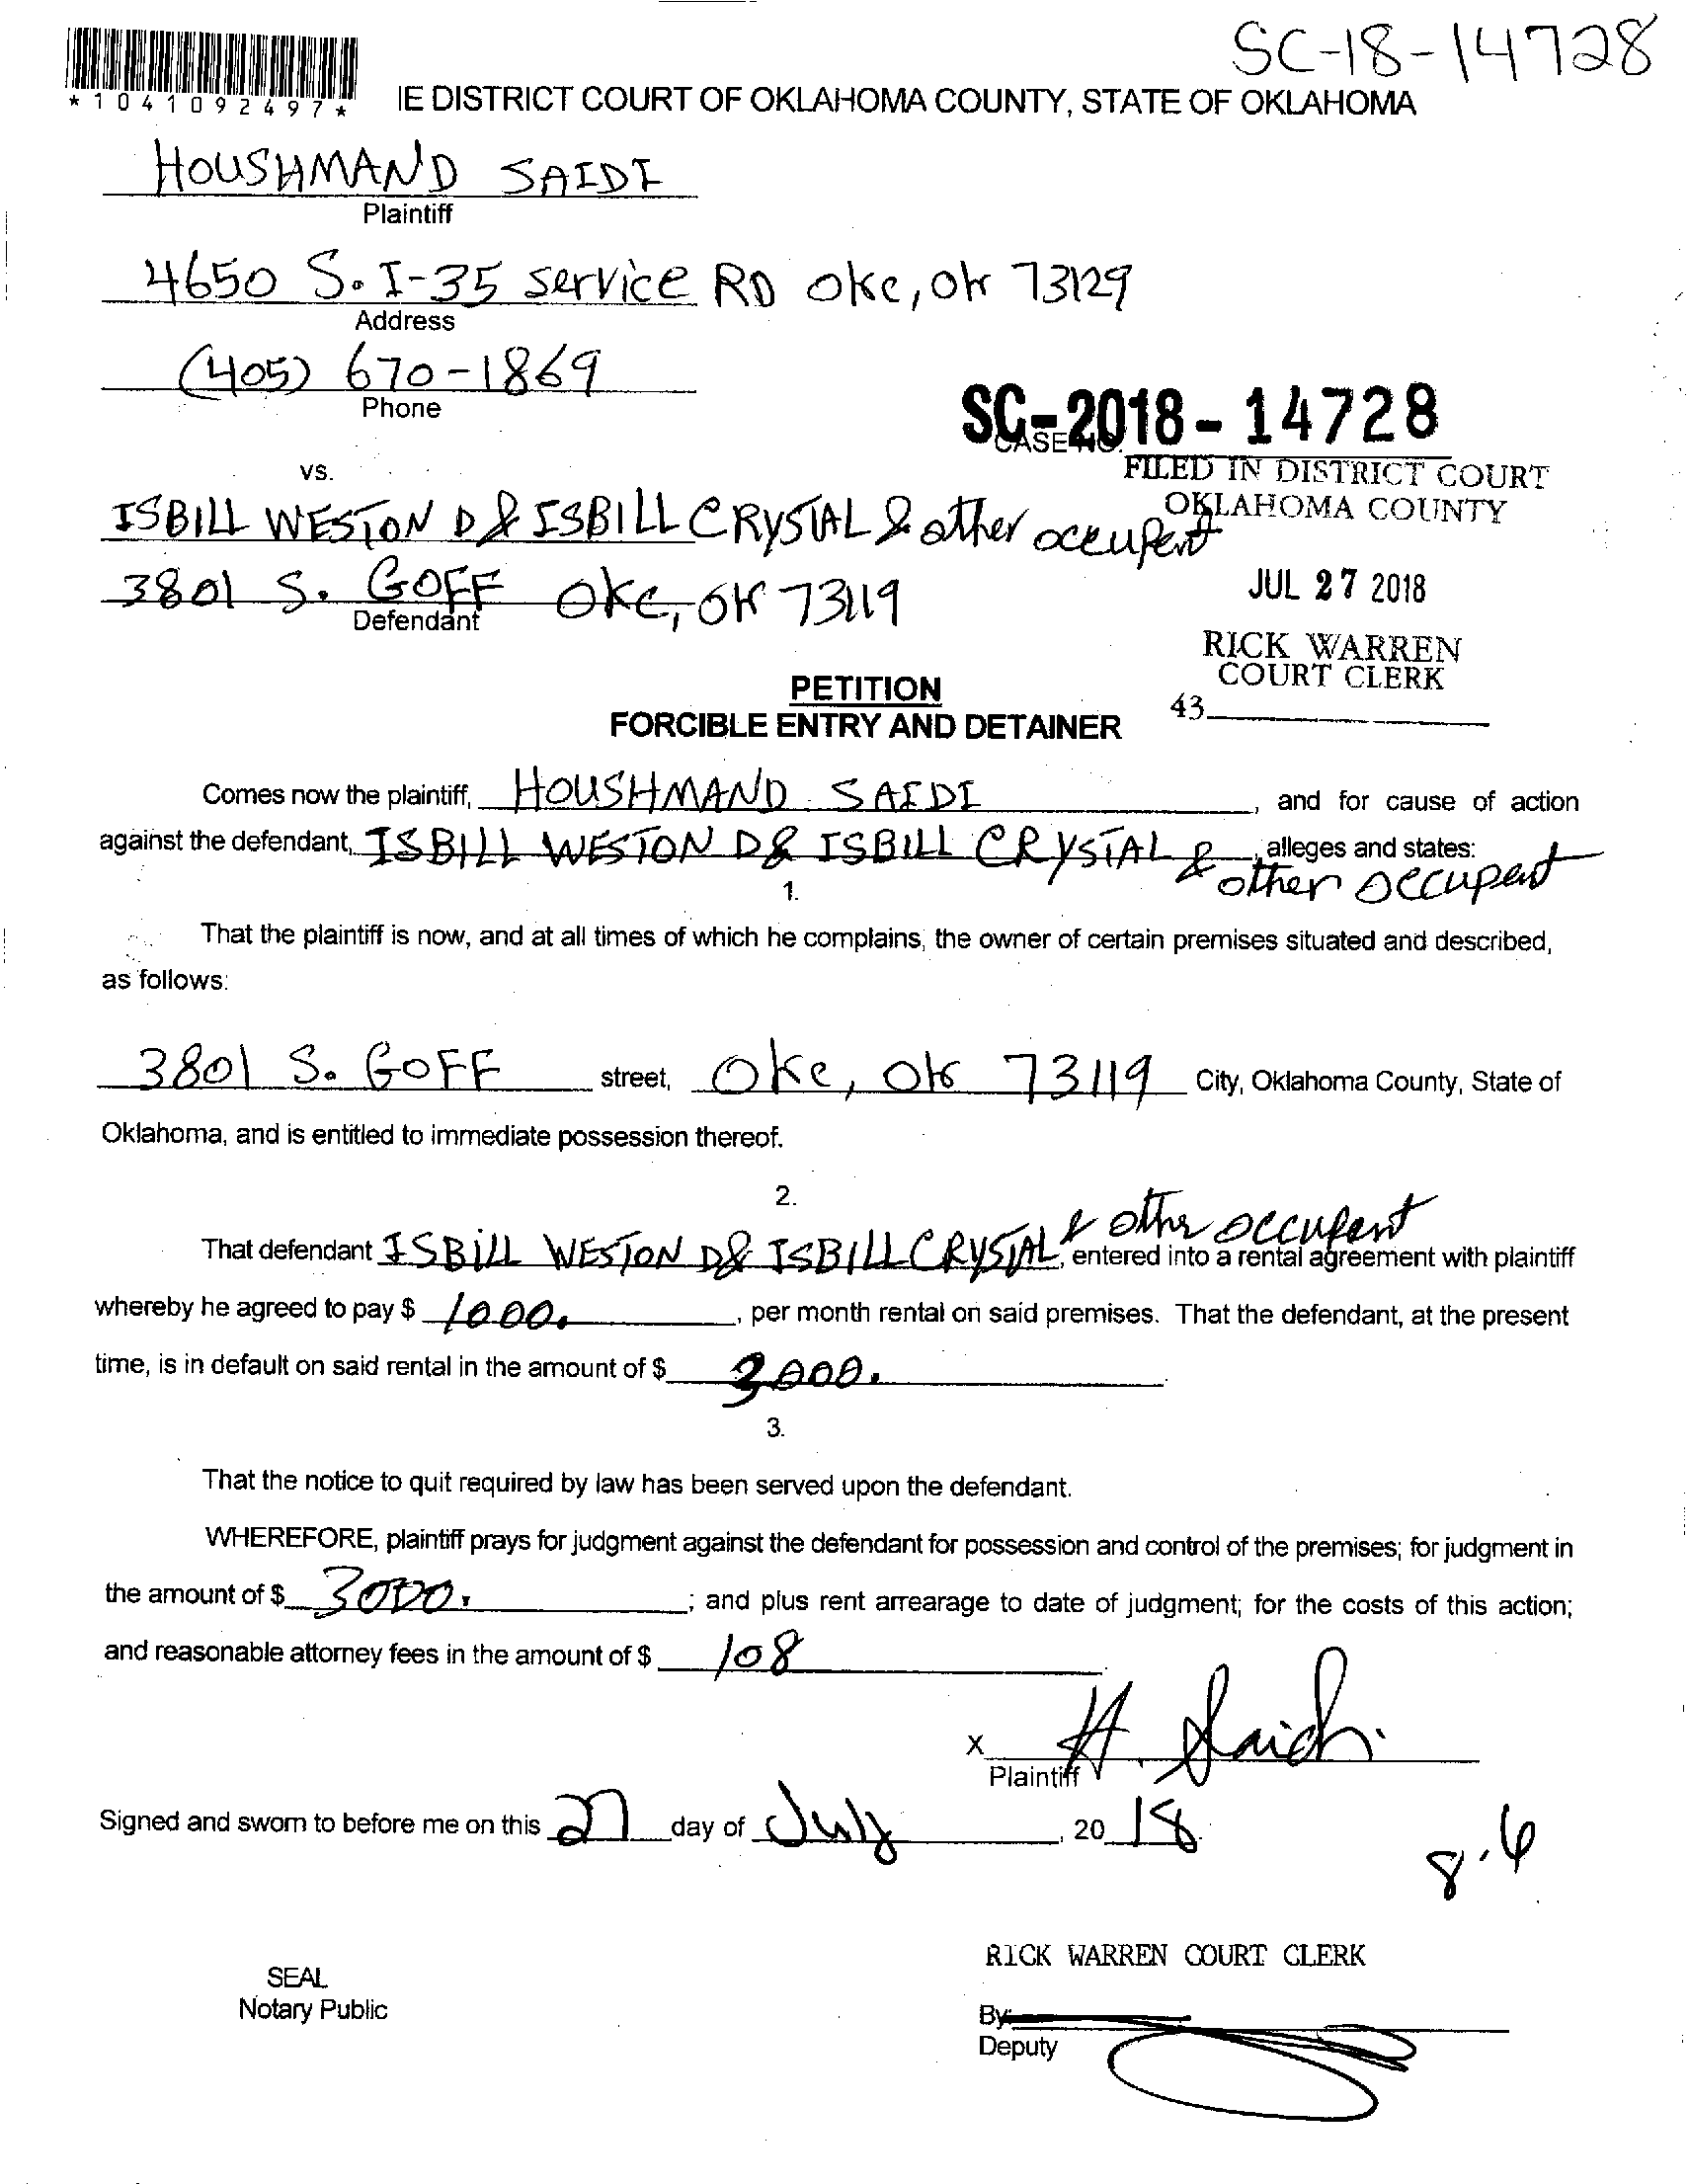 SC-18-14728
*1041092497*
IE DISTRICT COURT OF OKLAHOMA COUNTY, STATE OF OKLAHOMA
HOUSHMAND SAIDI
Plaintiff
4650 S. I-35 Service RD OKC, OK 73129
Address
(405) 670-1869
Phone
SC-2018-14728
CASE NO.
FILED IN DISTRICT COURT
OKLAHOMA COUNTY
vs.
ISBILL WESTON D & ISBILL CRYSTAL & other occupent
3801 S. GOFF OKC, OK 73119
Defendant
JUL 27 2018
RICK WARREN
COURT CLERK
43
PETITION
FORCIBLE ENTRY AND DETAINER
Comes now the plaintiff, HOUSHMAND SAIDI, and for cause of action
against the defendant, ISBILL WESTON D & ISBILL CRYSTAL & other occupent, alleges and states:
1.
That the plaintiff is now, and at all times of which he complains, the owner of certain premises situated and described,
as follows:
3801 S. GOFF street, OKC, OK 73119 City, Oklahoma County, State of
Oklahoma, and is entitled to immediate possession thereof.
2.
That defendant ISBILL WESTON D & ISBILL CRYSTAL & other occupent, entered into a rental agreement with plaintiff
whereby he agreed to pay $ 1000., per month rental on said premises. That the defendant, at the present
time, is in default on said rental in the amount of $ 3000.
3.
That the notice to quit required by law has been served upon the defendant.
WHEREFORE, plaintiff prays for judgment against the defendant for possession and control of the premises; for judgment in
the amount of $ 3000.; and plus rent arrearage to date of judgment; for the costs of this action;
and reasonable attorney fees in the amount of $ 108
x H. Saidi
Plaintiff
Signed and sworn to before me on this 27 day of July, 20 18
8.6
RICK WARREN COURT CLERK
SEAL
Notary Public
By:
Deputy